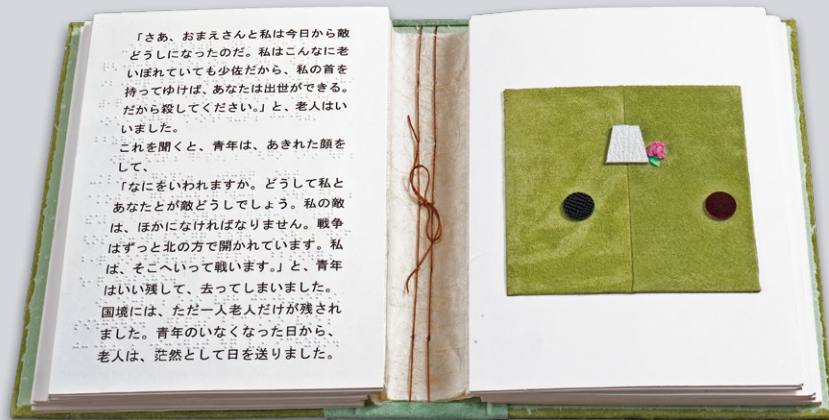 「さあ、おまえさんと私は今日から敵
どうしになったのだ。私はこんなに老
いぼれていても少佐だから、私の首を
持ってゆけば、あなたは出世ができる。
だから殺してください。」と、老人はい
いました。
これを聞くと、青年は、あきれた顔を
して、
「なにをいわれますか。どうして私と
あなたとが敵どうしでしょう。私の敵
は、ほかになければなりません。戦争
はずっと北の方で開かれています。私
は、そこへいって戦います。」と、青年
はいい残して、去ってしまいました。
国境には、ただ一人老人だけが残され
ました。青年のいなくなった日から、
老人は、茫然として日を送りました。